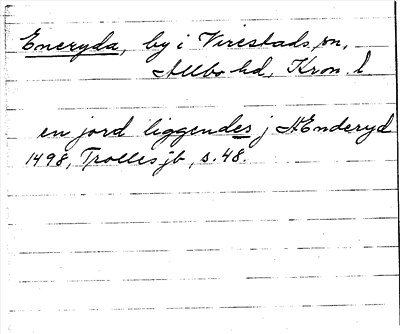 Eneryda, by i Virestads sn,
Allbo hd, Kron. l
en jord liggendes j Enderyd
1498, Trolles jb, s. 48.